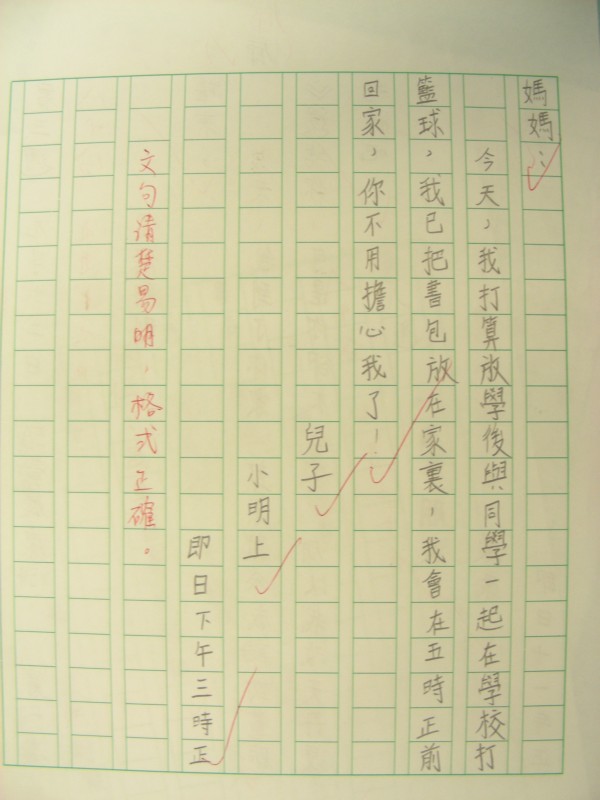 媽媽：
今天，我打算放學後與同學一起在學校打
籃球，我已把書包放在家裏，我會在五時正前
回家，你不用擔心我了！
兒子
小明上
即日下午三時正
文句清楚易明，格式正確。